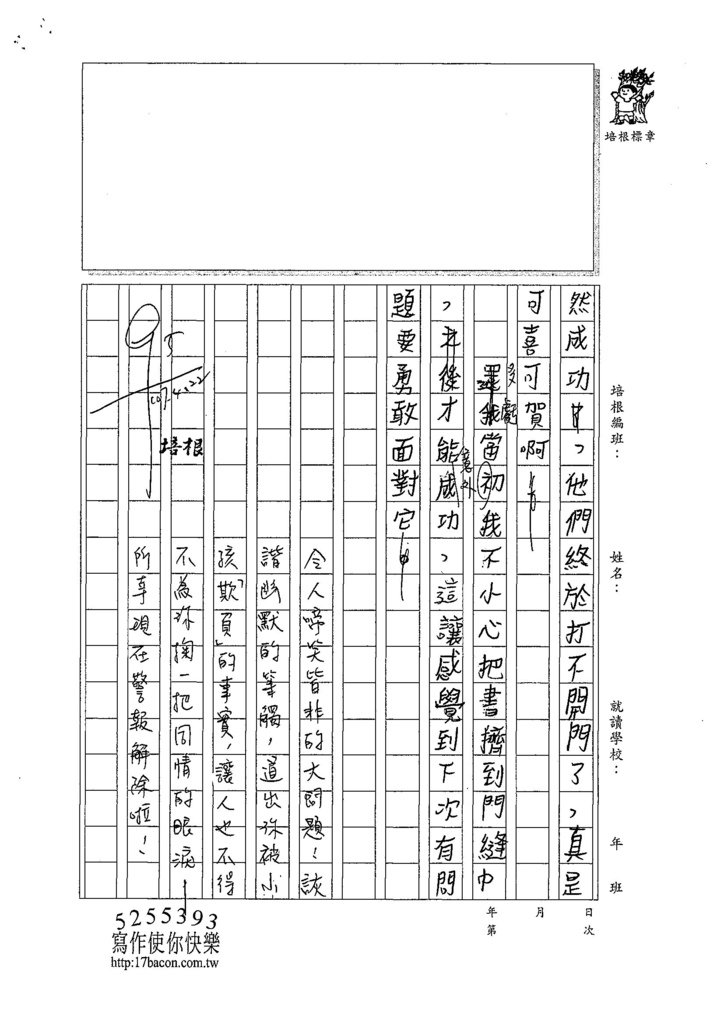 培根標章
培根編班：
姓名：
就讀學校：
年　班
日
月
年
次
第
然成功，他們終於打不開門了，真是
可喜可賀啊
多虧
還我當初我不小心把書擠到門縫中
，才後才能成功，這讓感覺到下次有問
意外
題要勇敢面對它
令人啼笑皆非的大問題！詼
諧幽默的筆觸，道出你被小
孩欺「負」的事實，讓人也不得
不為你掬一把同情的眼淚！
所幸現在警報解除啦！
培根
5255393
寫作使你快樂
http:17bacon.com.tw